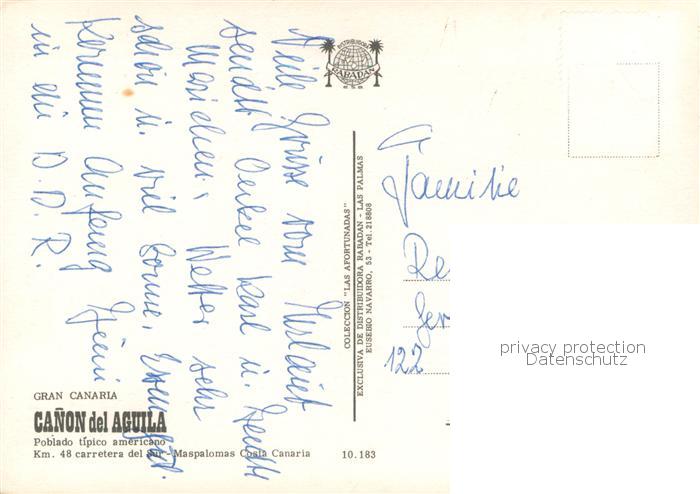 Viele Grüsse vom Urlaub
sendet Onkel Karl u. Tante
Mariechen, Wetter sehr
schön u. viel Sonne,
Kommen Anfang Juni
in die D.D.R.
DISTRIBUIDORA
RABADAN
COLECCION "LAS AFORTUNADAS"
EXCLUSIVA DE DISTRIBUIDORA RABADAN - LAS PALMAS
EUSEBIO NAVARRO, 53 - Tel. 218808
Familie
Re
122
privacy protection
Datenschutz
GRAN CANARIA
CAÑON del AGUILA
Poblado típico americano
Km. 48 carretera del Sur - Maspalomas Costa Canaria
10.183